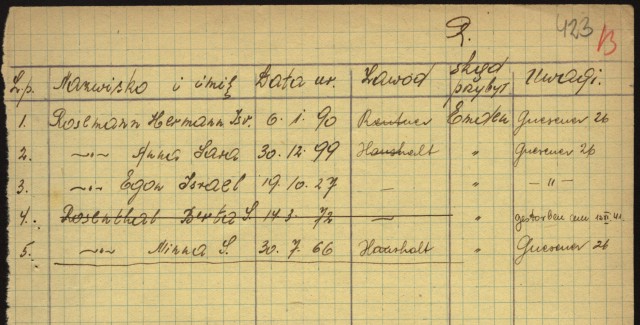 423
B
R.
L.p. Nazwisko i imię Data ur. Zawód skąd przybył Uwagi.
1. Rosemann Hermann Isr. 6. 1. 90 Rentner Emden Gnesener 26
2. -"- Anna Sara 30. 12. 99 Haushalt " Gnesener 26
3. -"- Egon Israel 19. 10. 27 — " -"-
4. Rosenthal Berta S. 14 3. 72 — " gestorben am
5. -"- Minna S. 30. 7. 66 Haushalt " Gnesener 26